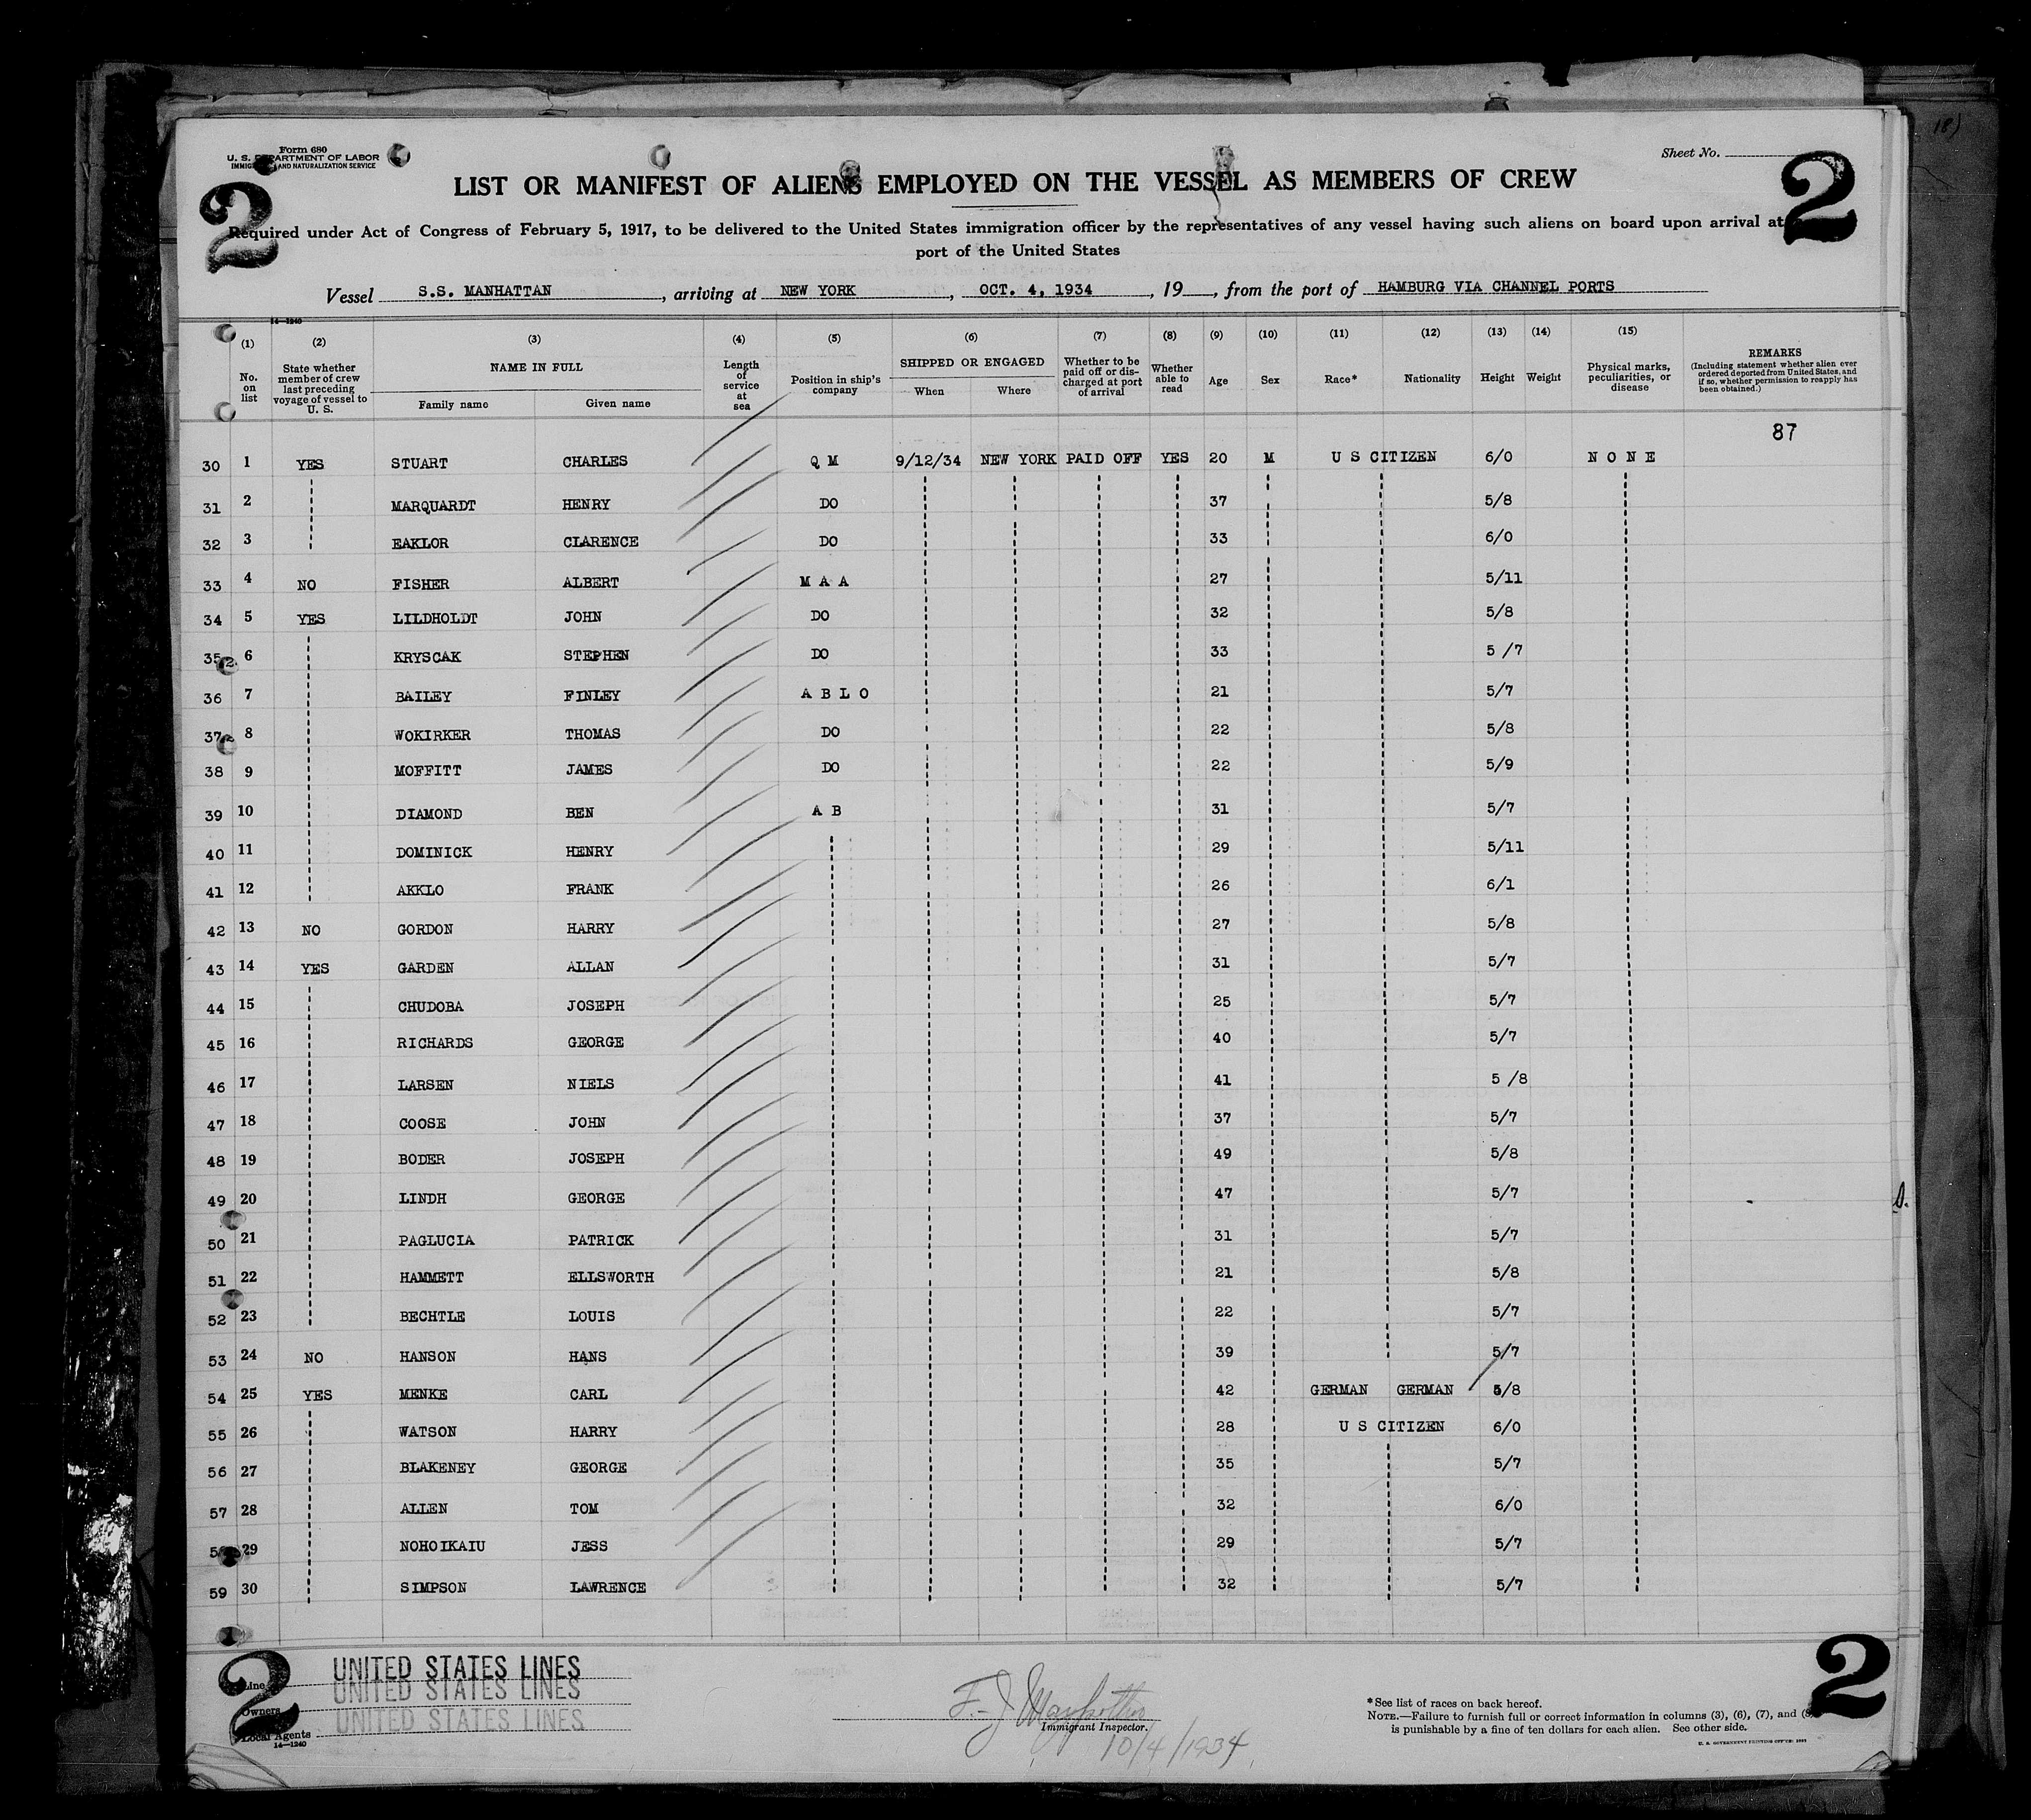 18)
Form 680
U. S. DEPARTMENT OF LABOR
IMMIGRATION AND NATURALIZATION SERVICE
Sheet No.
2 2
LIST OR MANIFEST OF ALIENS EMPLOYED ON THE VESSEL AS MEMBERS OF CREW
Required under Act of Congress of February 5, 1917, to be delivered to the United States immigration officer by the representatives of any vessel having such aliens on board upon arrival at
port of the United States
Vessel S.S. MANHATTAN, arriving at NEW YORK, OCT. 4, 1934, 19, from the port of HAMBURG VIA CHANNEL PORTS
14—1240
(1) No. on list
(2) State whether member of crew last preceding voyage of vessel to U. S.
(3) NAME IN FULL Family name Given name
(4) Length of service at sea
(5) Position in ship's company
(6) SHIPPED OR ENGAGED When Where
(7) Whether to be paid off or discharged at port of arrival
(8) Whether able to read
(9) Age
(10) Sex
(11) Race*
(12) Nationality
(13) Height
(14) Weight
(15) Physical marks, peculiarities, or disease
REMARKS (Including statement whether alien ever ordered deported from United States, and if so, whether permission to reapply has been obtained.)
87
30 1 YES STUART CHARLES Q M 9/12/34 NEW YORK PAID OFF YES 20 M U S CITIZEN 6/0 N O N E
31 2 MARQUARDT HENRY DO 37 5/8
32 3 EAKLOR CLARENCE DO 33 6/0
33 4 NO FISHER ALBERT M A A 27 5/11
34 5 YES LILDHOLDT JOHN DO 32 5/8
35 6 KRYSCAK STEPHEN DO 33 5 /7
36 7 BAILEY FINLEY A B L O 21 5/7
37 8 WOKIRKER THOMAS DO 22 5/8
38 9 MOFFITT JAMES DO 22 5/9
39 10 DIAMOND BEN A B 31 5/7
40 11 DOMINICK HENRY 29 5/11
41 12 AKKLO FRANK 26 6/1
42 13 NO GORDON HARRY 27 5/8
43 14 YES GARDEN ALLAN 31 5/7
44 15 CHUDOBA JOSEPH 25 5/7
45 16 RICHARDS GEORGE 40 5/7
46 17 LARSEN NIELS 41 5 /8
47 18 COOSE JOHN 37 5/7
48 19 BODER JOSEPH 49 5/8
49 20 LINDH GEORGE 47 5/7
50 21 PAGLUCIA PATRICK 31 5/7
51 22 HAMMETT ELLSWORTH 21 5/8
52 23 BECHTLE LOUIS 22 5/7
53 24 NO HANSON HANS 39 5/7
54 25 YES MENKE CARL 42 GERMAN GERMAN 5/8
55 26 WATSON HARRY 28 U S CITIZEN 6/0
56 27 BLAKENEY GEORGE 35 5/7
57 28 ALLEN TOM 32 6/0
29 NOHOIKAIU JESS 29 5/7
59 30 SIMPSON LAWRENCE 32 5/7
2 2
Line UNITED STATES LINES
Owners UNITED STATES LINES
Local Agents UNITED STATES LINES
14—1240
F. J.
Immigrant Inspector.
10/4/1934
*See list of races on back hereof.
NOTE.—Failure to furnish full or correct information in columns (3), (6), (7), and (8)
is punishable by a fine of ten dollars for each alien. See other side.
U. S. GOVERNMENT PRINTING OFFICE